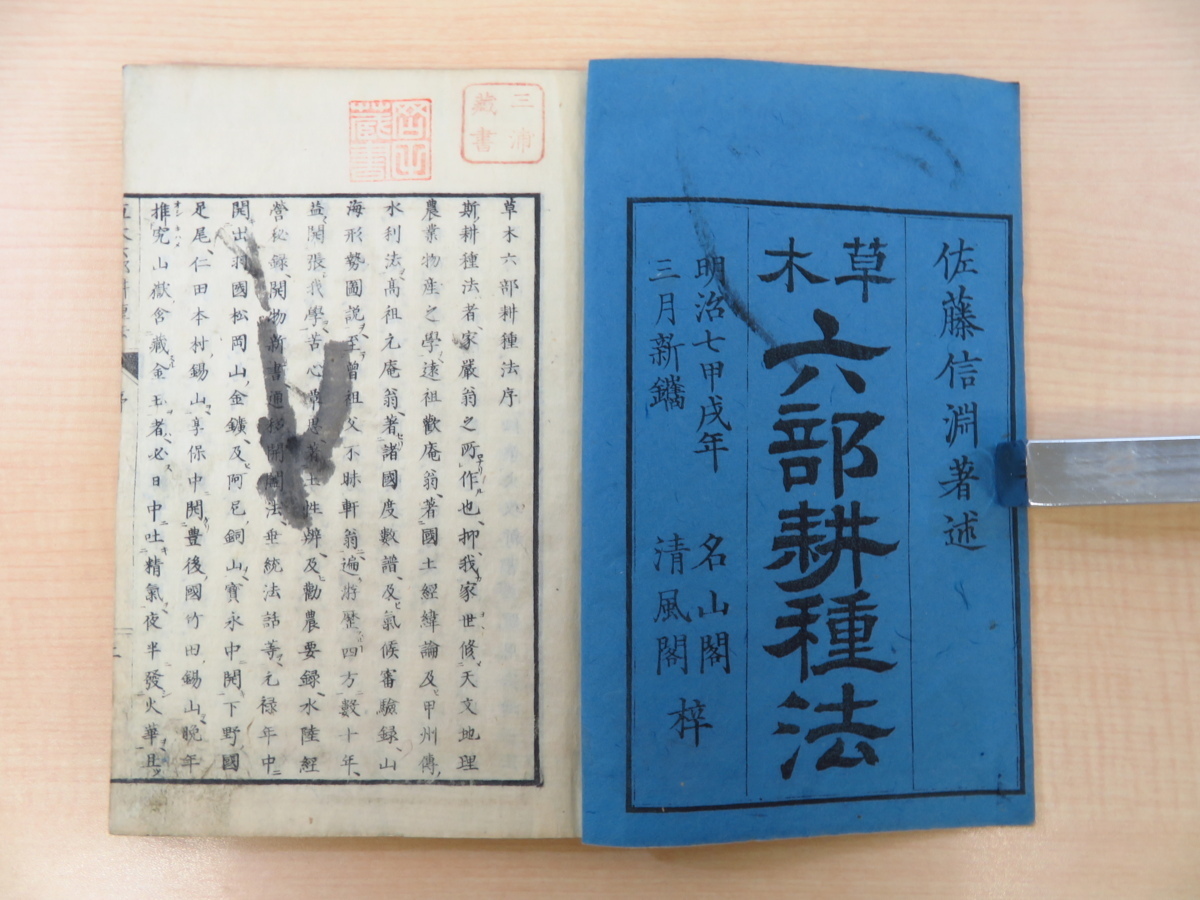 佐藤信淵著述
草木
六部耕種法
明治七甲戌年
三月新鐫
名山閣
清風閣
梓
三浦
藏書
藏書
草木六部耕種法序
斯耕種法者、家嚴翁之所作也、抑我家世修天文地理
農業物産之學、遠祖歡庵翁、著國土經緯論及甲州傳
水利法、高祖元庵翁、著諸國度數譜、及氣候審驗録、山
海形勢圖説、至曾祖父不昧軒翁、遍將歴四方數十年、
益開張我學、苦心常思、著土性辨、及勸農要録、水陸經
營秘録、開物新書、通法、垂統法話等、元禄年中
開出羽國松岡山金鑛、及阿邑銅山、寶永中開下野國
足尾、仁田本村錫山、享保中開豊後國竹田錫山、晩年
推究山嶽含藏金玉者、必日中吐精氣、夜半發火華、且